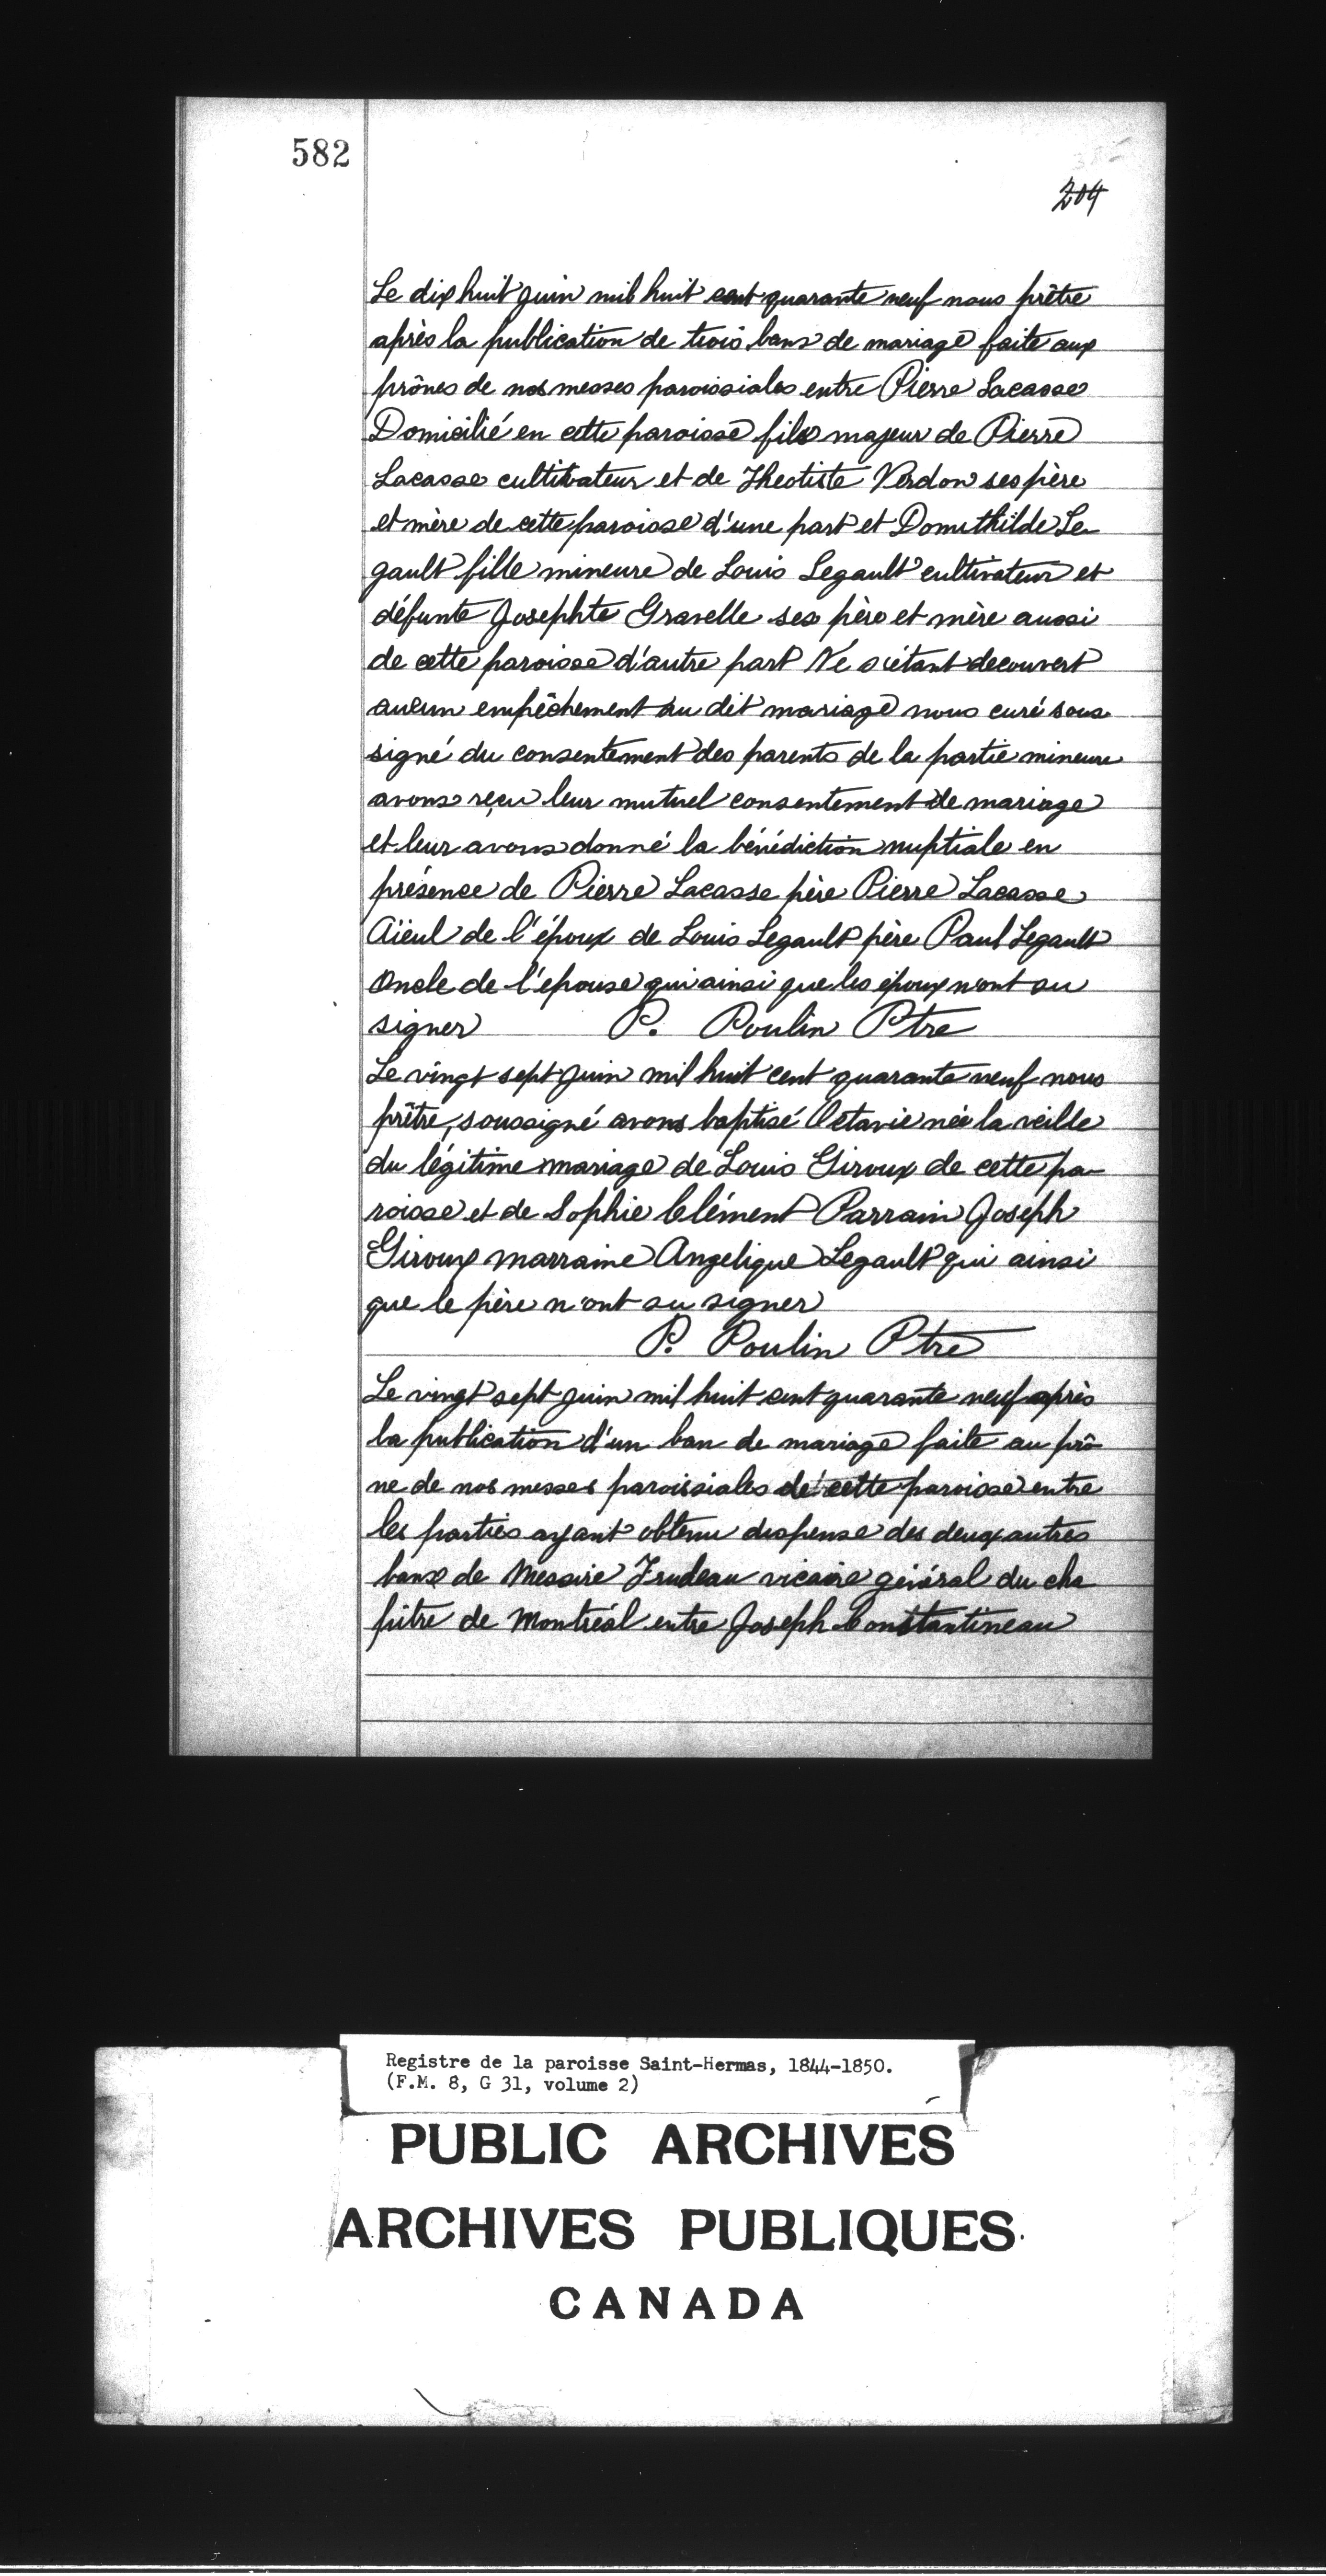 582
204
Le dix huit juin mil huit cent quarante neuf nous prêtre
après la publication de trois bans de mariage faite aux
prônes de nos messes paroissiales entre Pierre Lacasse
Domicilié en cette paroisse fils majeur de Pierre
Lacasse cultivateur et de Theotiste Verdon ses père
et mère de cette paroisse d'une part et Domithilde Le
gault fille mineure de Louis Legault cultivateur et
défunte Josephte Gravelle ses père et mère aussi
de cette paroisse d'autre part Ne s'étant decouvert
aucun empêchement au dit mariage nous curé sous
signé du consentement des parents de la partie mineure
avons reçu leur mutuel consentement de mariage
et leur avons donné la bénédiction nuptiale en
présence de Pierre Lacasse père Pierre Lacasse
Aïeul de l'époux de Louis Legault père Paul Legault
Oncle de l'épouse qui ainsi que les époux n'ont su
signer P. Poulin Ptre
Le vingt sept juin mil huit cent quarante neuf nous
prêtre, soussigné avons baptisé Octavie née la veille
du légitime mariage de Louis Giroux de cette pa-
roisse et de Sophie Clément Parrain Joseph
Giroux marraine Angelique Legault qui ainsi
que le père n'ont su signer
P. Poulin Ptre
Le vingt sept juin mil huit cent quarante neuf après
la publication d'un ban de mariage faite au prô
ne de nos messes paroissiales de cette paroisse entre
les parties ayant obtenu dispense des deux autres
bans de Messire Trudeau vicaire général du cha
pitre de Montréal entre Joseph Constantineau
Registre de la paroisse Saint-Hermas, 1844-1850.
(F.M. 8, G 31, volume 2)
PUBLIC ARCHIVES
ARCHIVES PUBLIQUES
CANADA